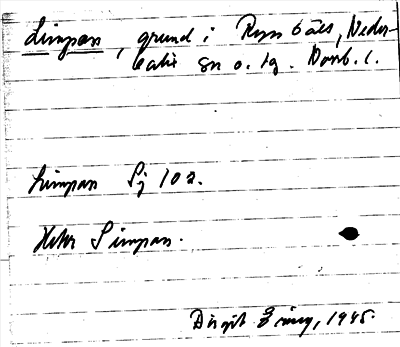 Limpan, grund i Ryssbält, Neder-
Kalix sn o. tg. Norrb. l.
Limpan Sj 102.
Heter Limpan.
Birgit 1945.